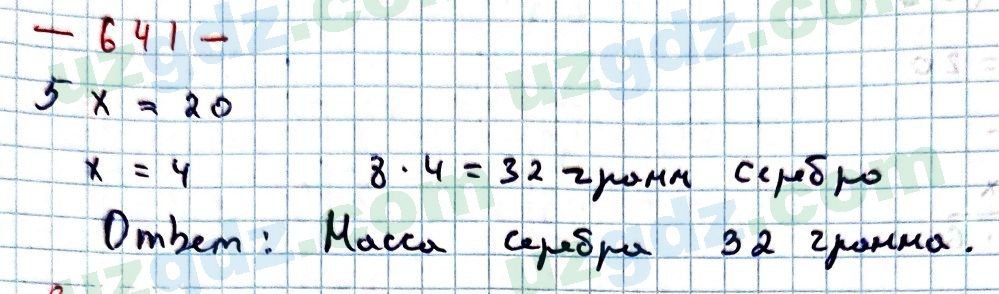 — 641 —
5 x = 20
x = 4 8 · 4 = 32 грамм серебро
Ответ: Масса серебра 32 грамма.
uzgdz.com